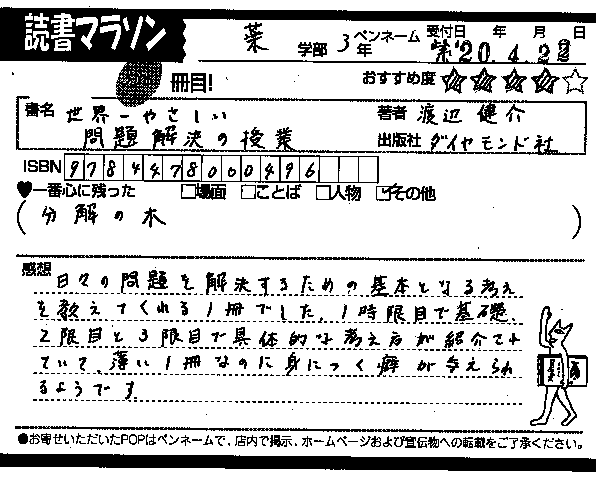 読書マラソン
薬 学部 3年 ペンネーム 受付日 年 月 日
'20.4.22
冊目! おすすめ度
書名 世界一やさしい 著者 渡辺 健介
問題解決の授業 出版社 ダイヤモンド社
ISBN 9784478000496
♥一番心に残った □場面 □ことば □人物 ☑その他
(分解の木)
感想 日々の問題を解決するための基本となる考え
を教えてくれる1冊でした。1時限目で基礎、
2限目と3限目で具体的な考え方が紹介され
ていて、薄い1冊なのに身につく癖が与えられ
るようです
●お寄せいただいたPOPはペンネームで、店内で掲示、ホームページおよび宣伝物への転載をご了承ください。